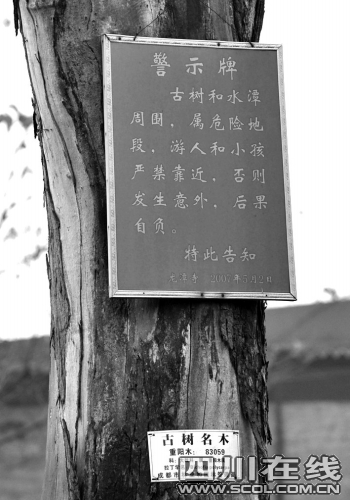 警示牌
古树和水潭
周围，属危险地
段，游人和小孩
严禁靠近，否则
发生意外，后果
自负。
特此告知
2007年5月2日
古树名木
重阳木: 83059
科:
拉丁
成都市
四川在线
WWW.SCOL.COM.CN